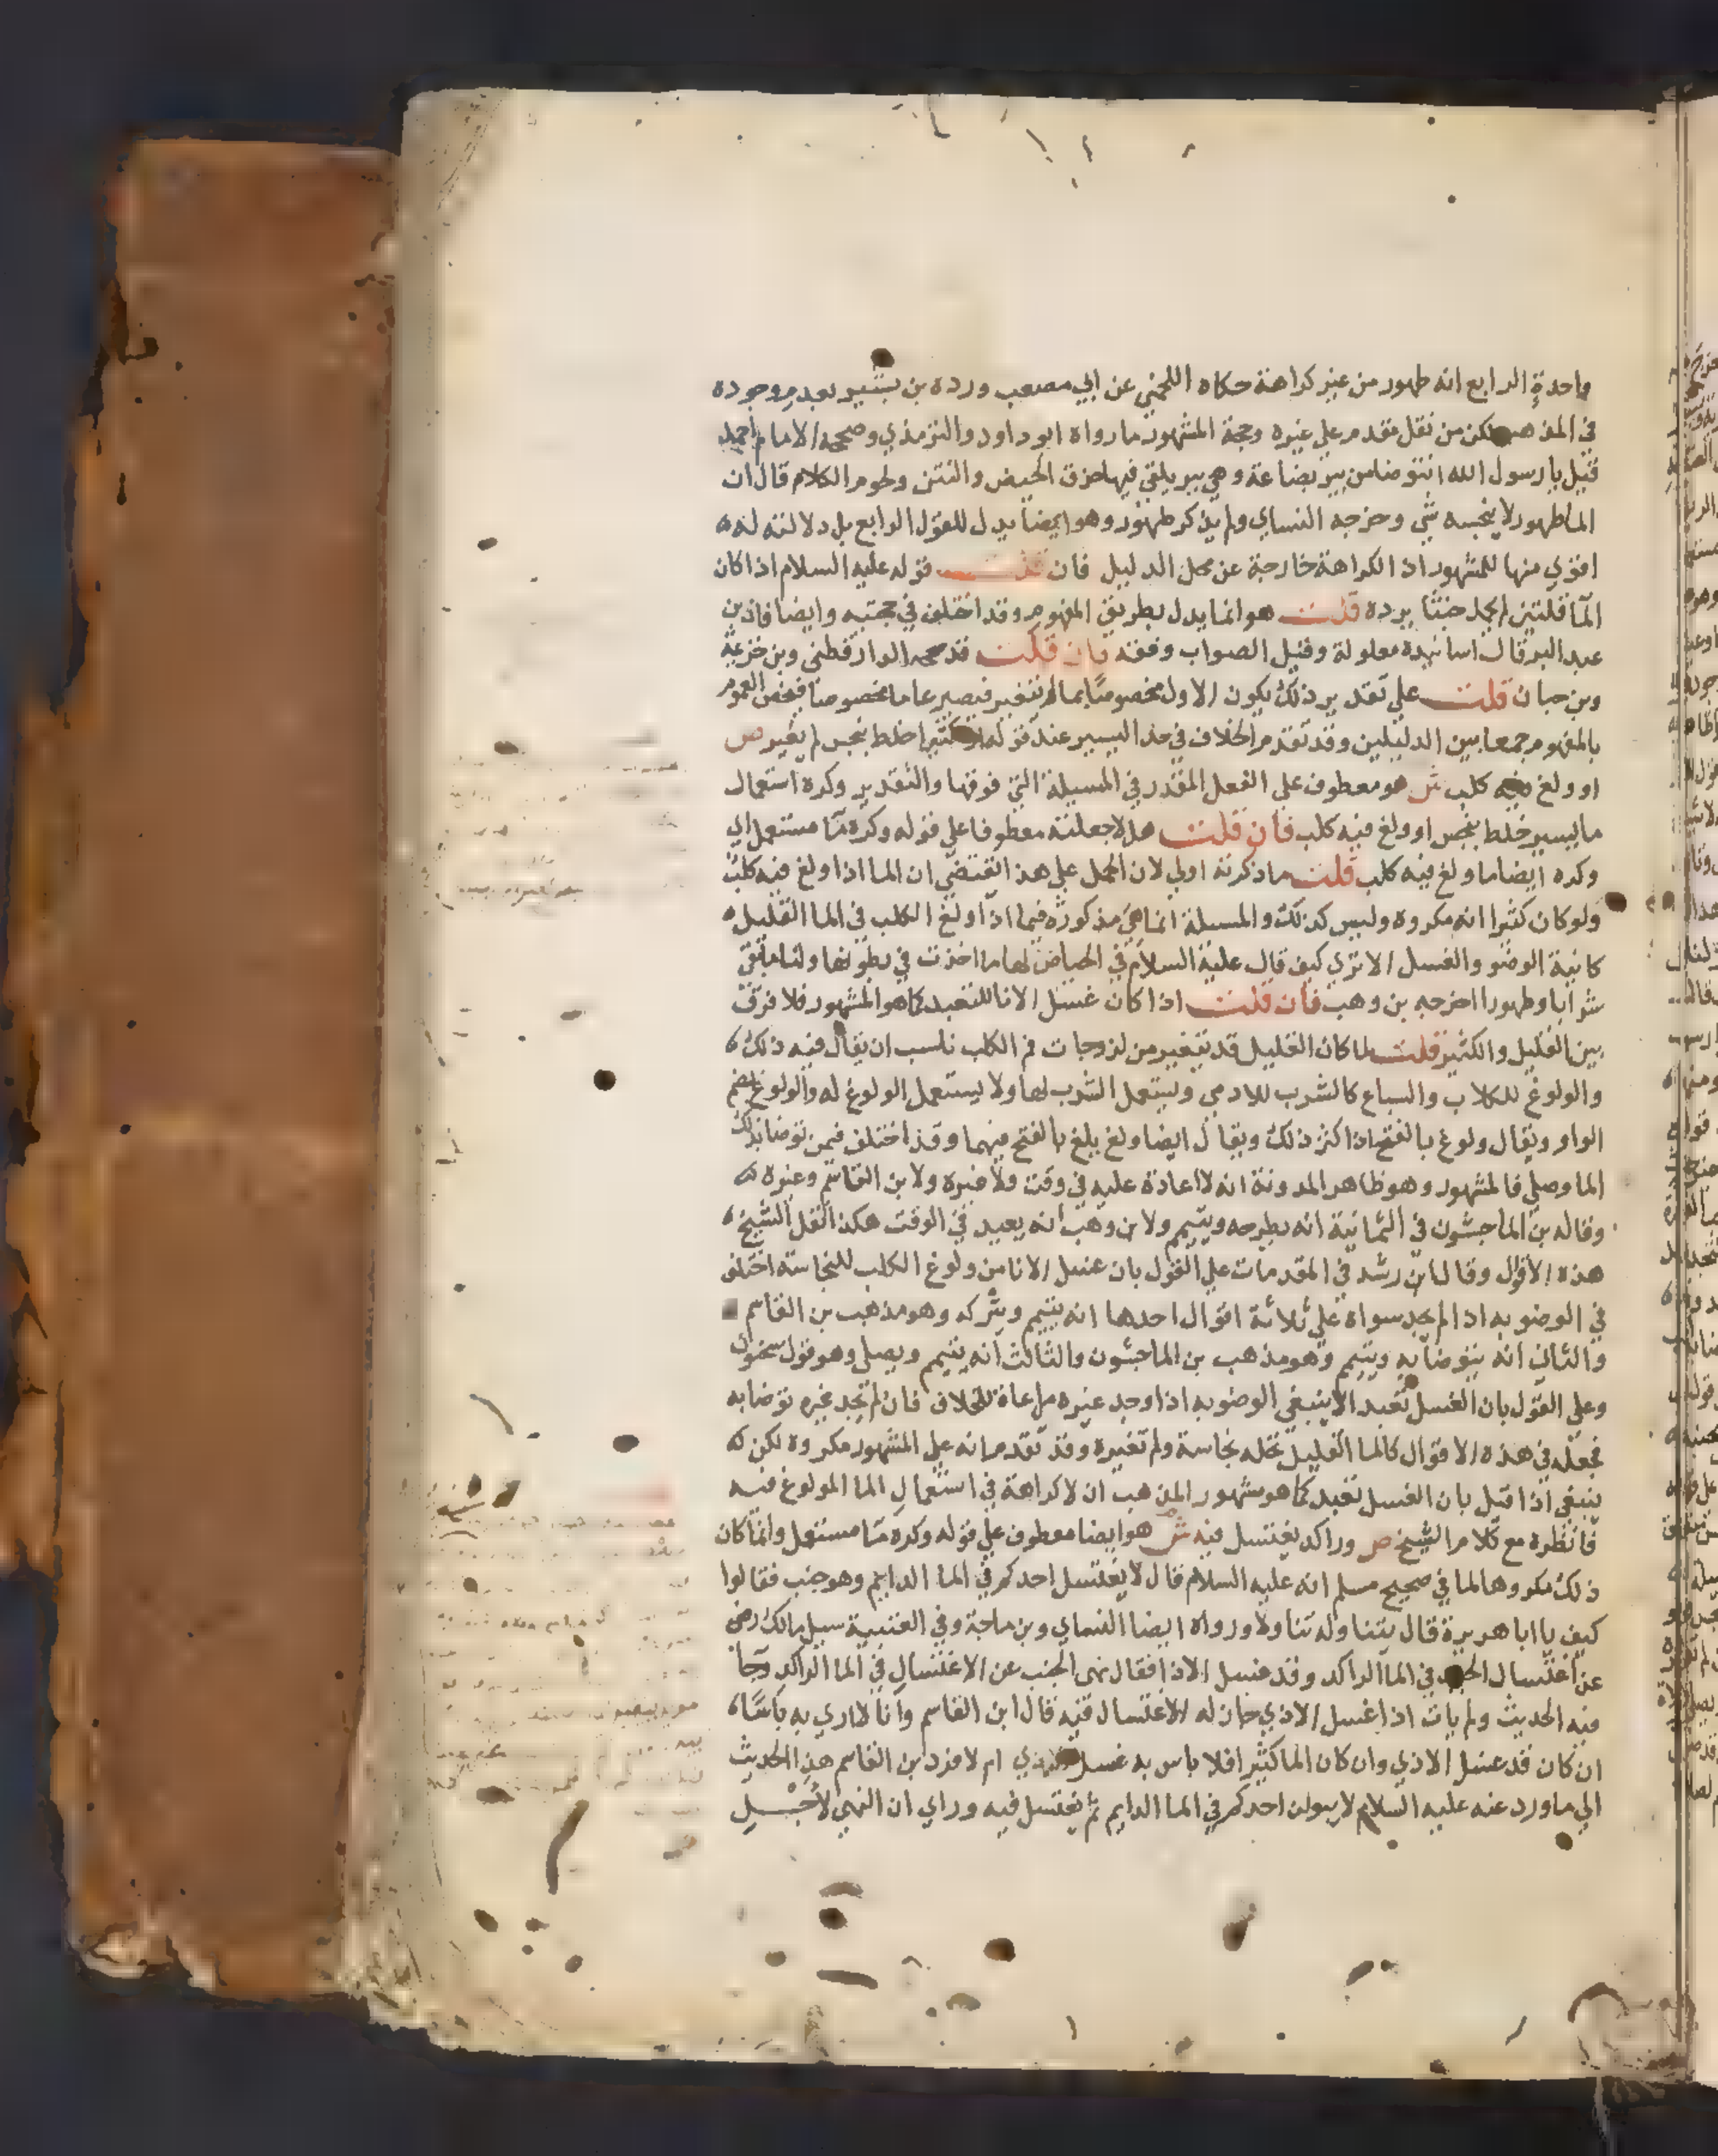 واحدة الرابع انه طهور من غير كراهة حكاه اللخمي عن ابي مصعب ورده بن بشير بعدم وجوده
في المذهب لكن من نقل مقدم علي غيره وحجة المشهور ما رواه ابو داود والترمذي وصححه الامام احمد
قيل يا رسول الله انتوضا من بير بضاعة وهي بير يلقي فيها خرق الحيض والنتن ولحوم الكلاب قال ان
الما طهور لا ينجسه شي وخرجه النساي ولم يذكر طهور وهو ايضا يدل للقول الرابع بل دلالته له
اقوي منها للمشهور اذ الكراهة خارجة عن محل الدليل فان قلت قوله عليه السلام اذا كان
الما قلتين لم يحمل خبثا يرده قلت هو انما يدل بطريق المفهوم وقد اختلف في حجته وايضا فان بن
عبد البر قال اسانيده معلولة وقيل الصواب وقفه فان قلت قد صححه الدارقطني وبن خزيمة
وبن حبان قلت علي تقدير ذلك يكون الاول مخصوصا بما لم يتغير فيصير عاما مخصوصا فيخص العموم
بالمفهوم جمعا بين الدليلين وقد تقدم الخلاف في حد اليسير عند قوله او كثيرا خلط بنجس لم يغير ص
او ولغ فيه كلب ش هو معطوف علي الفعل المقدر في المسيلة التي فوقها والتقدير وكره استعمال
ما يسير خلط بنجس او ولغ فيه كلب فان قلت هلا جعلته معطوفا علي قوله وكره ما مستعمل اي
وكره ايضا ما ولغ فيه كلب قلت ما ذكرته اولي لان الحمل علي هذا يقتضي ان الما اذا ولغ فيه كلب
ولو كان كثيرا انه مكروه وليس كذلك والمسيلة انما هي مذكورة فيما اذا ولغ الكلب في الما القليل
كانية الوضو والغسل الا تري كيف قال عليه السلام في الحياض لها ما اخذت في بطونها ولنا ما بقي
شرابا وطهورا اخرجه بن وهب فان قلت اذا كان غسل الانا للتعبد كما هو المشهور فلا فرق
بين القليل والكثير قلت لما كان القليل قد يتغير من لزوجات فم الكلب ناسب ان يقال فيه ذلك
والولوغ للكلاب والسباع كالشرب للادمي ويستعمل الشرب لها ولا يستعمل الولوغ له والولوغ بضم
الواو ويقال ولوغ بالفتح اذا كثر ذلك ويقال ايضا ولغ يلغ بالفتح فيهما وقد اختلف فيمن توضا بذلك
الما وصلي فالمشهور وهو ظاهر المدونة انه لا اعادة عليه في وقت ولا غيره ولابن القاسم وغيره
وقاله بن الماجشون في الثمانية انه يطرحه ويتيمم ولابن وهب انه يعيد في الوقت هكذا نقل الشيخ
هذه الاقوال وقال ابن رشد في المقدمات علي القول بان غسل الانا من ولوغ الكلب للنجاسة اختلف
في الوضو به اذا لم يجد سواه علي ثلاثة اقوال احدها انه يتيمم ويتركه وهو مذهب بن القاسم
والثاني انه يتوضا به ويتيمم وهو مذهب بن الماجشون والثالث انه يتيمم ويصلي وهو قول سحنون
وعلي القول بان الغسل تعبد لا ينبغي الوضو به اذا وجد غيره مراعاة للخلاف فان لم يجد غيره توضا به
فجعله في هذه الاقوال كالما القليل تحله نجاسة ولم تغيره وقد تقدم انه علي المشهور مكروه لكن
ينبغي اذا قيل بان الغسل تعبد كما هو مشهور المذهب ان لا كراهة في استعمال الما المولوغ فيه
فانظره مع كلام الشيخ ص وراكد يغتسل فيه ش هو ايضا معطوف علي قوله وكره ما مستعمل وانما كان
ذلك مكروها لما في صحيح مسلم انه عليه السلام قال لا يغتسل احدكم في الما الدايم وهو جنب فقالوا
كيف يا ابا هريرة قال يتناوله تناولا ورواه ايضا النساي وبن ماجة وفي العتبية سيل مالك رضي
عن اغتسال الجنب في الما الراكد وقد غسل الاذا فقال نهي الجنب عن الاغتسال في الما الراكد وجا
فيه الحديث ولم يات اذا غسل الاذي جاز له الاغتسال فيه قال ابن القاسم وانا لا اري به باسا
ان كان قد غسل الاذي وان كان الما كثيرا فلا باس به غسل الاذي ام لا فرد بن القاسم هذا الحديث
الي ما ورد عنه عليه السلام لا يبولن احدكم في الما الدايم ثم يغتسل فيه وراي ان النهي لاجل